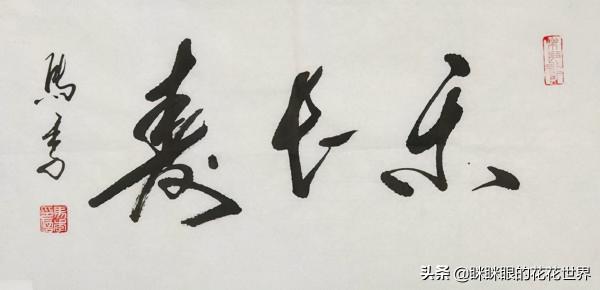 乐长寿
馬季
头条 @眯眯眼的花花世界